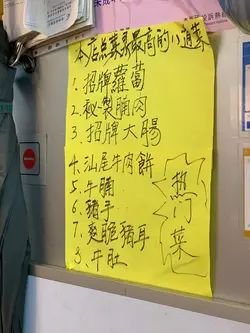 本店点菜率最高的八道菜
1. 招牌蘿蔔
2. 秘製腩肉
3. 招牌大腸
4. 汕尾牛肉餅
5. 牛腩
6. 豬手
7. 爽脆豬耳
8. 牛肚
熱门菜